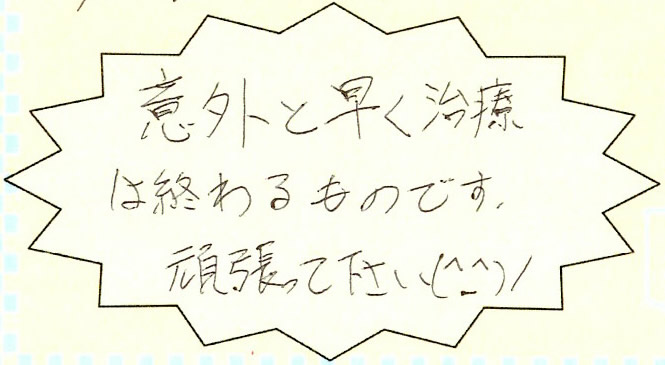 意外と早く治療
は終わるものです。
頑張って下さい(^_^)/